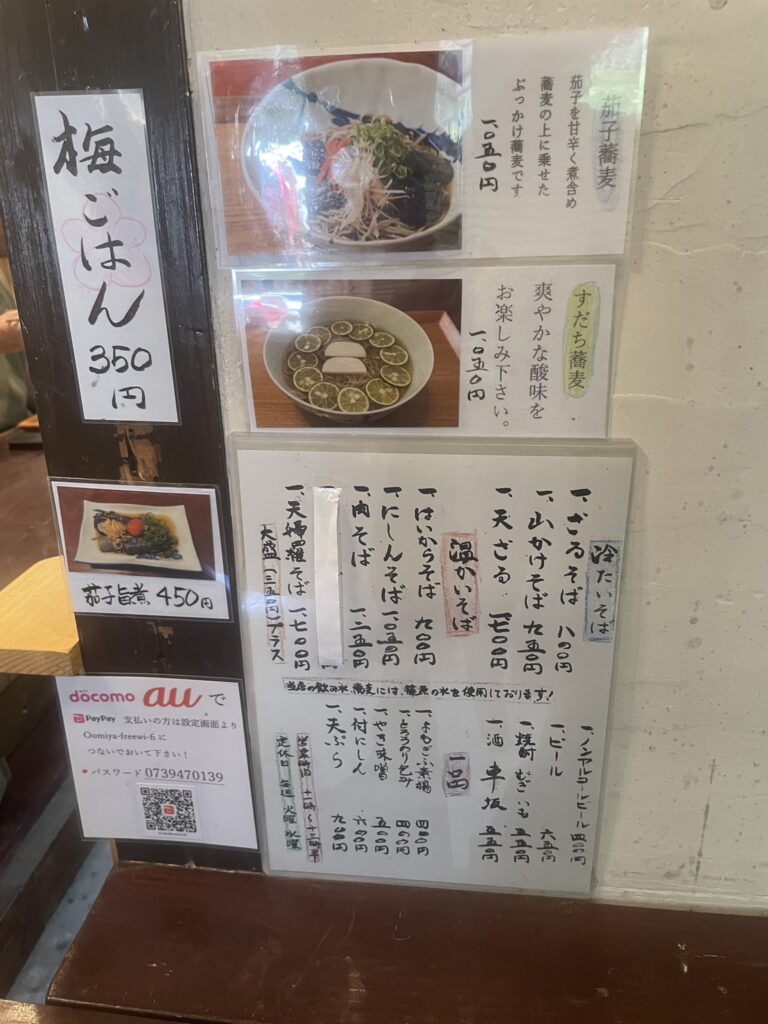 梅ごはん
350
円
茄子蕎麦
茄子を甘辛く煮含め
蕎麦の上に乗せた
ぶっかけ蕎麦です
一、〇五〇円
すだち蕎麦
爽やかな酸味を
お楽しみ下さい。
一、〇五〇円
茄子旨煮 450円
docomo au で
PayPay 支払いの方は設定画面より
Oomiya-freewi-fi に
つないでおいて下さい!
パスワード 0739470139
冷たいそば
一、ざるそば 八〇〇円
一、山かけそば 九五〇円
一、天ざる 一、七〇〇円
温かいそば
一、はいからそば 九〇〇円
一、にしんそば 一、〇五〇円
一、肉そば 一、二五〇円
一、天婦羅そば 一、七〇〇円
大盛(三五〇円)プラス
当店の飲み水、蕎麦には、の水を使用しております!
一、ノンアルコールビール 四〇〇円
一、ビール 六五〇円
一、焼酎 むぎ いも 五五〇円
一、酒 車坂 五五〇円
一品
一、よもぎごふ 四〇〇円
一、とろろのり 四〇〇円
一、やき味噌 五〇〇円
一、付にしん 六〇〇円
一、天ぷら 九〇〇円
営業時間 十一時〜十三時半
定休日 毎週 火曜 水曜